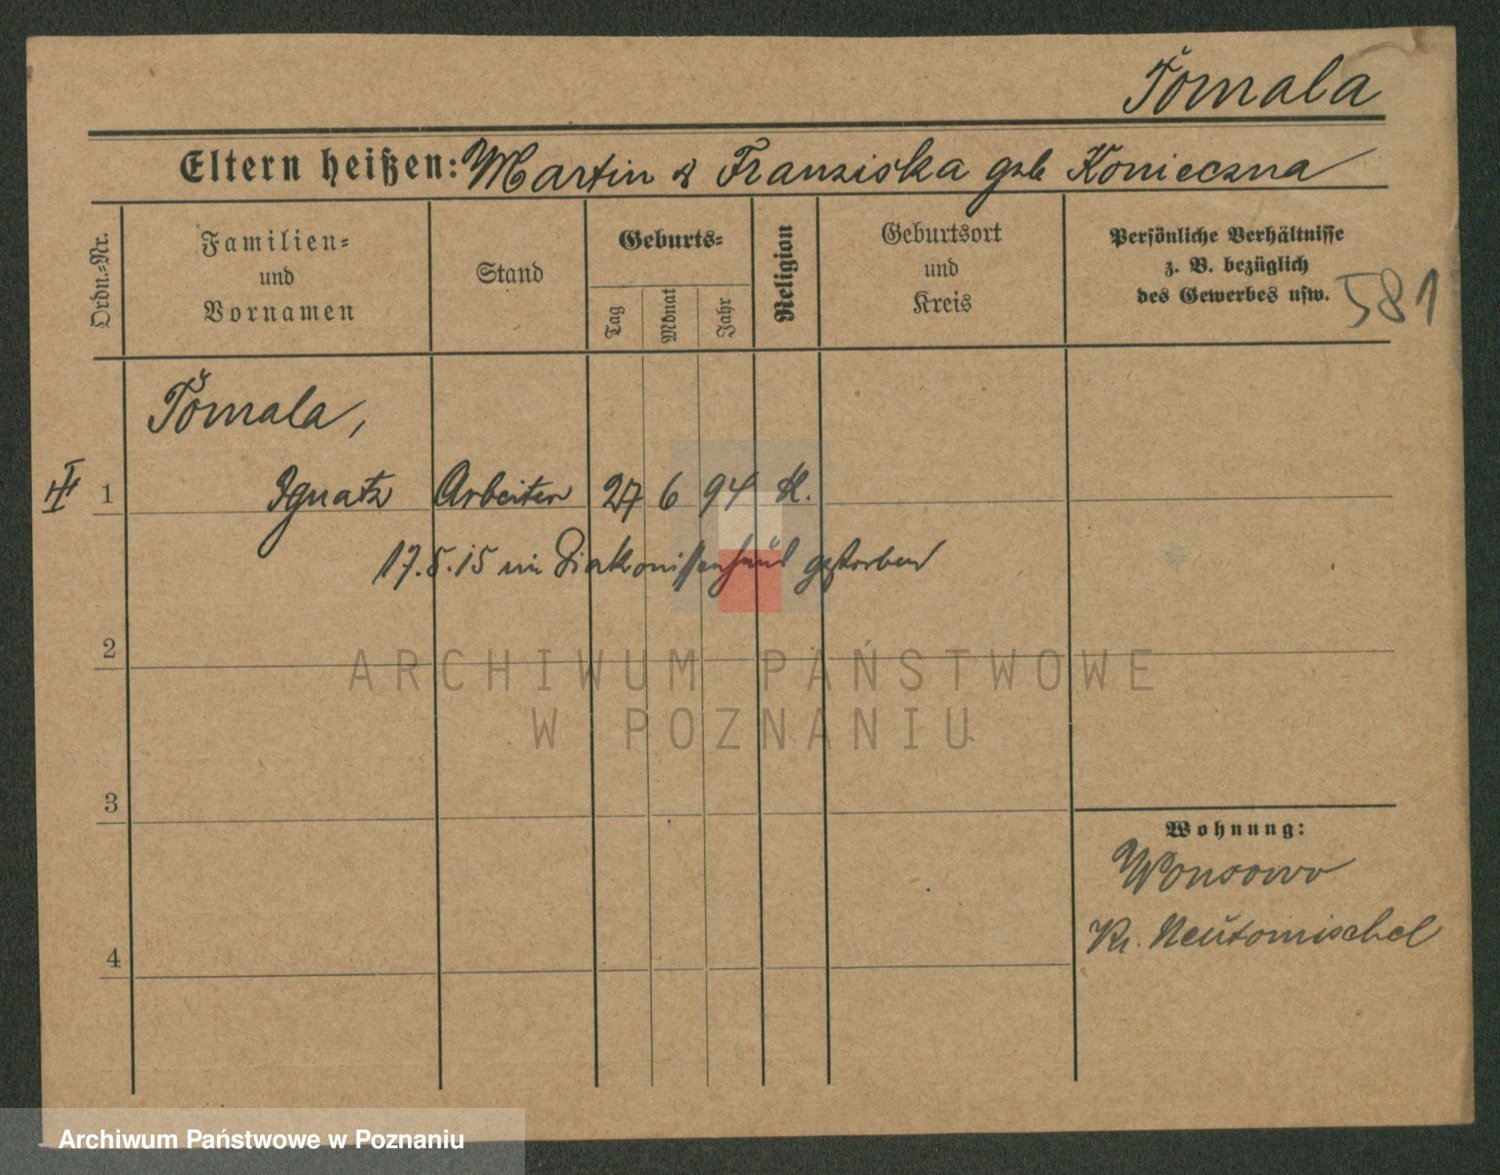 Tomala
Eltern heißen: Martin & Franziska geb Konieczna
Ordn.-Nr.
Familien-
und
Vornamen
Stand
Geburts-
Tag
Monat
Jahr
Religion
Geburtsort
und
Kreis
Persönliche Verhältnisse
z. B. bezüglich
des Gewerbes usw.
581
Tomala,
1 Ignatz Arbeiter 27 6 94 k.
17.5.15 im Diakonissenhaus gestorben
2
ARCHIWUM PAŃSTWOWE
W POZNANIU
3
Wohnung:
Wonsowo
Kr. Neutomischel
4
Archiwum Państwowe w Poznaniu